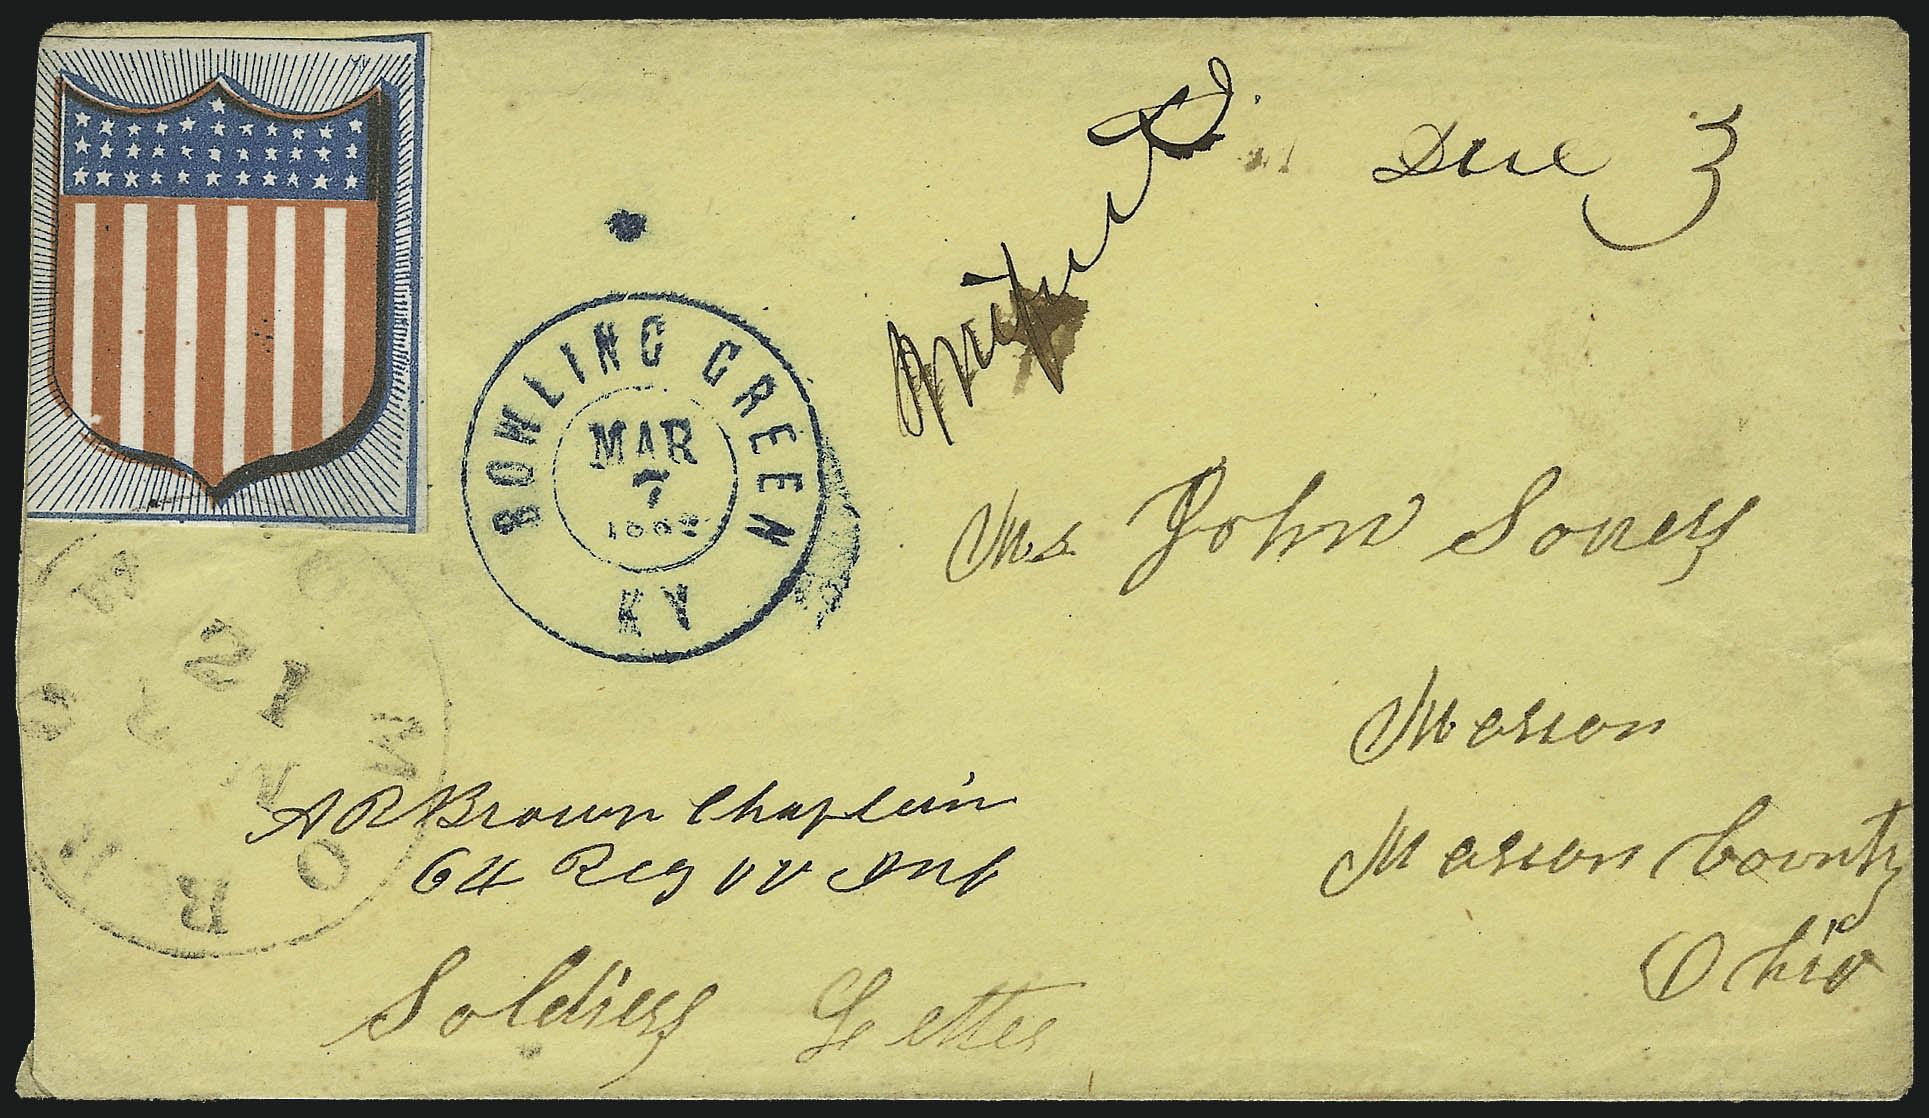 Due 3
BOWLING GREEN
MAR
7
1862
KY
Mr John Soneys
Marion
Marion County
Ohio
A R Brown Chaplain
64 Reg VV Inf
Soldiers Letter